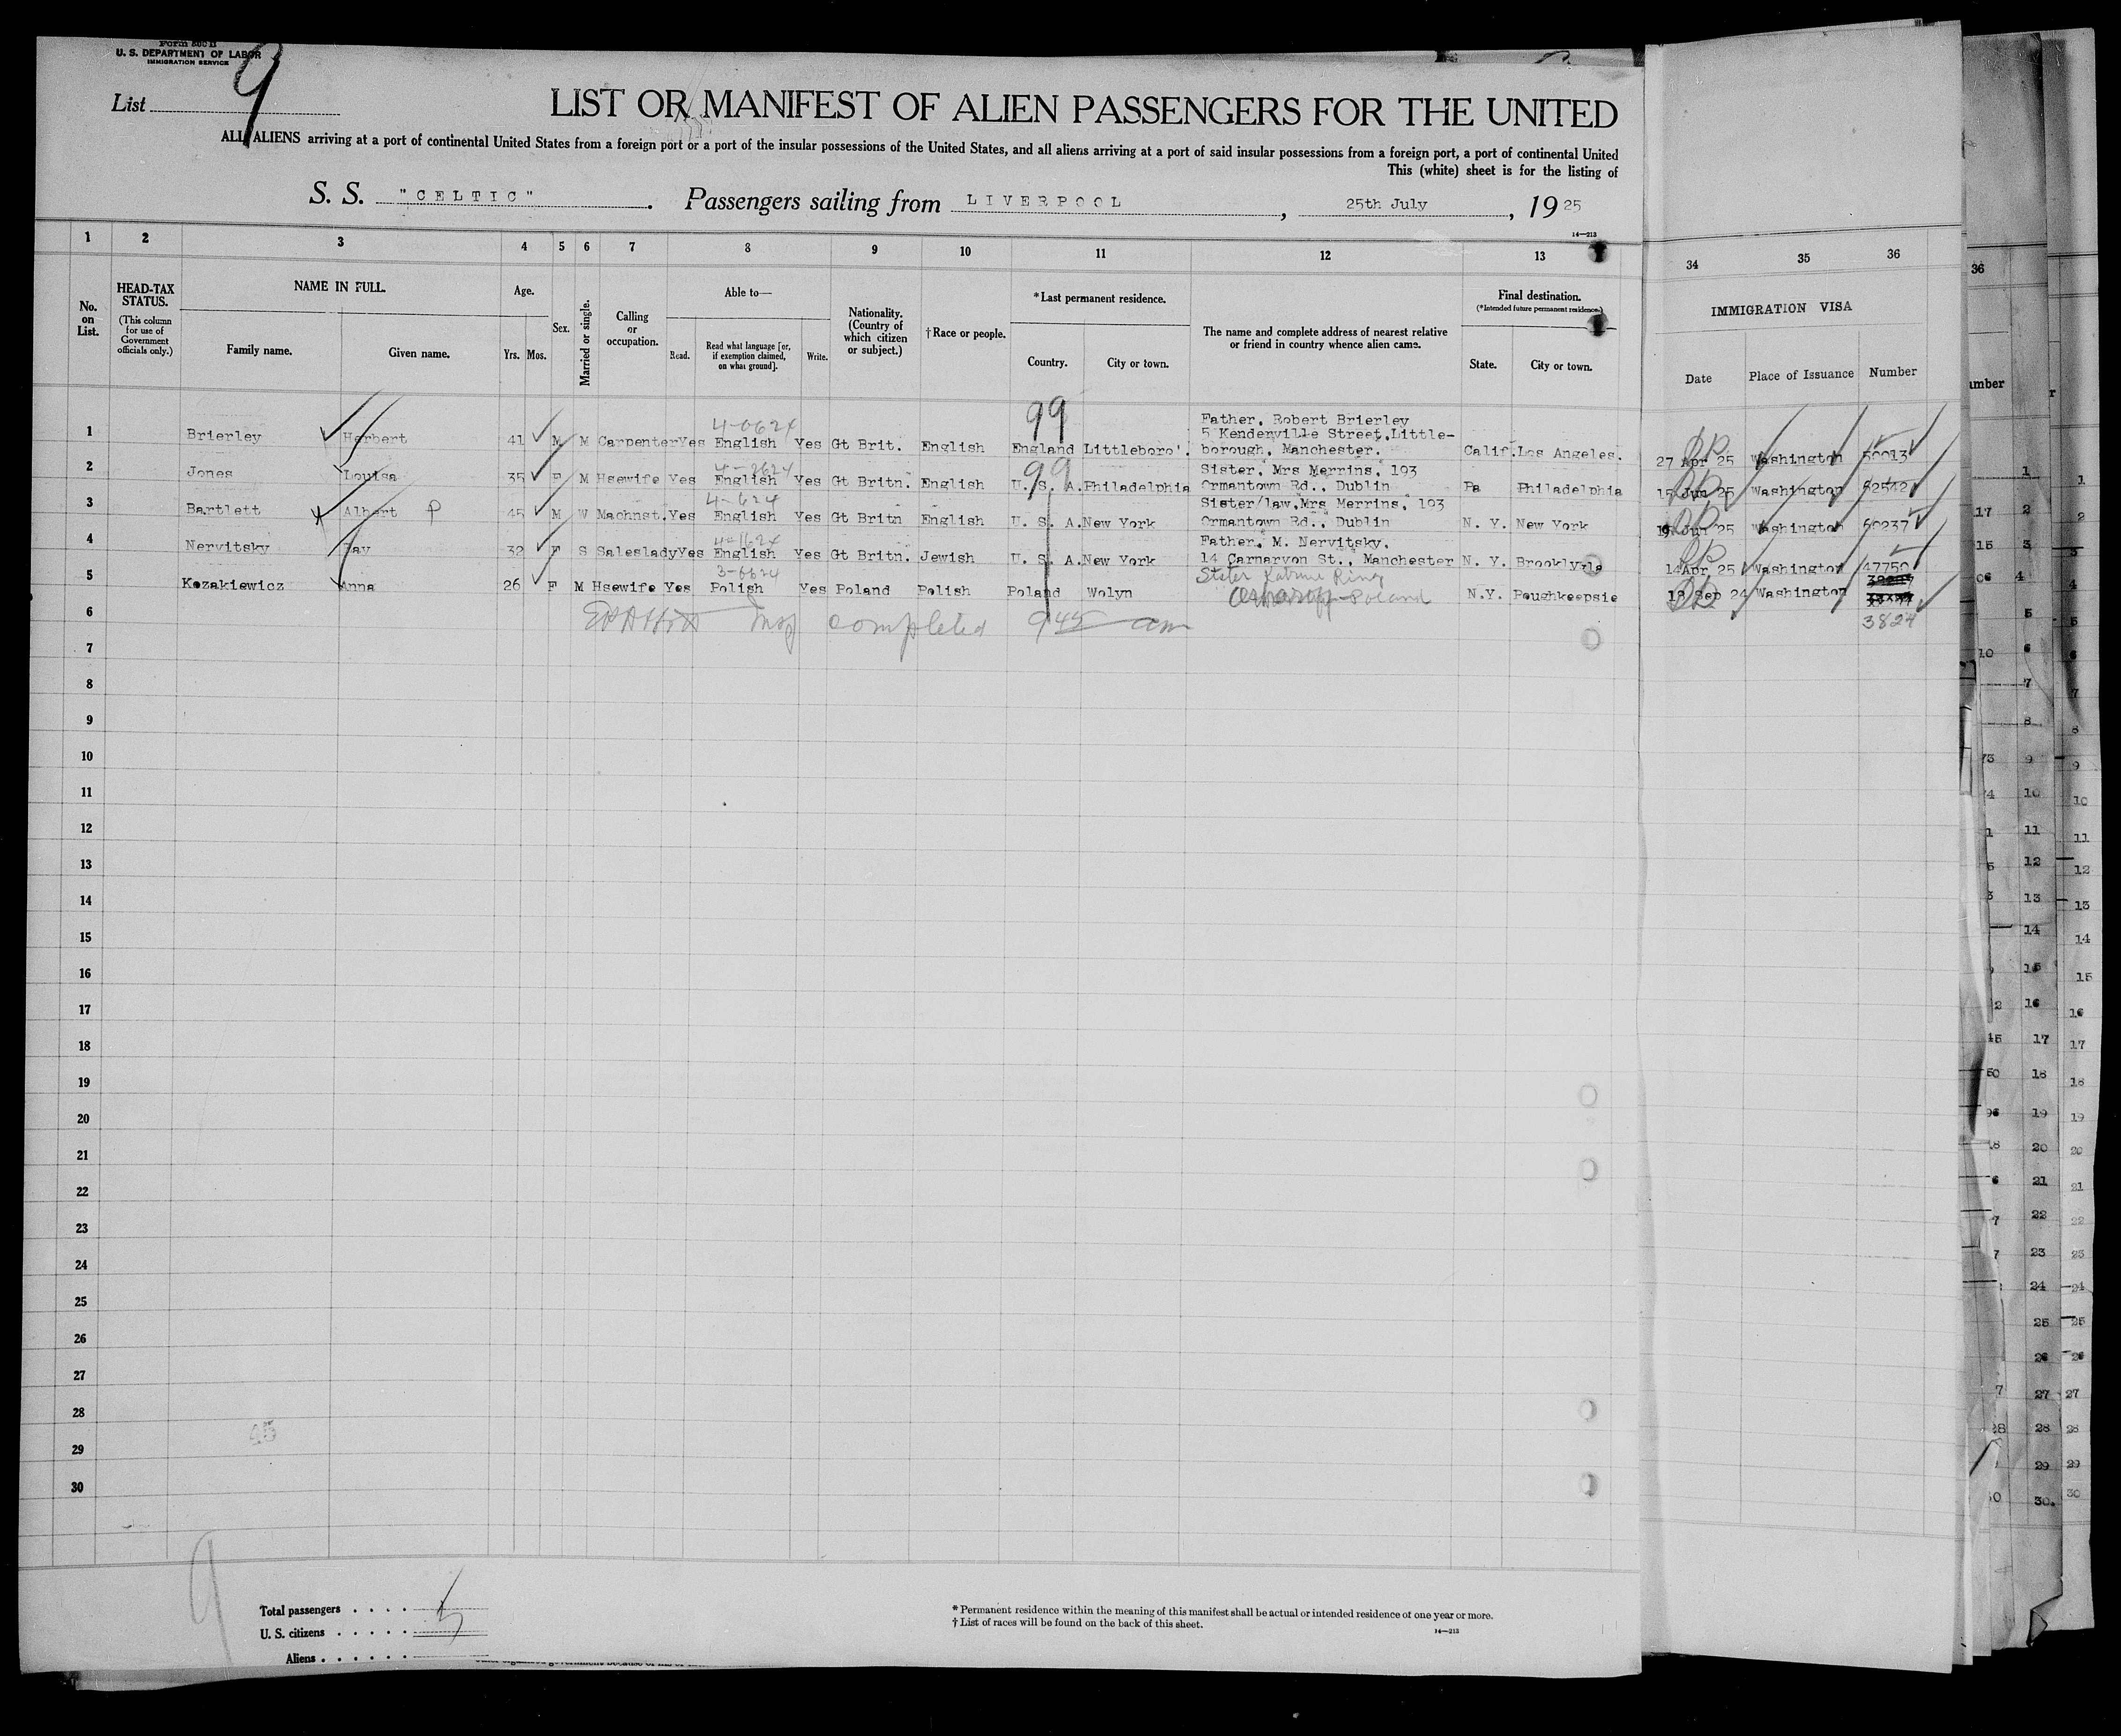 Form 500 B
U. S. DEPARTMENT OF LABOR
IMMIGRATION SERVICE
List 9
LIST OR MANIFEST OF ALIEN PASSENGERS FOR THE UNITED
ALL ALIENS arriving at a port of continental United States from a foreign port or a port of the insular possessions of the United States, and all aliens arriving at a port of said insular possessions from a foreign port, a port of continental United
This (white) sheet is for the listing of
S. S. "CELTIC". Passengers sailing from LIVERPOOL, 25th July, 1925
14—213
1 2 3 4 5 6 7 8 9 10 11 12 13 34 35 36
No. on List.
HEAD-TAX STATUS.
(This column for use of Government officials only.)
NAME IN FULL.
Family name. Given name.
Age.
Yrs. Mos.
Sex.
Married or single.
Calling or occupation.
Able to—
Read. Read what language [or, if exemption claimed, on what ground]. Write.
Nationality. (Country of which citizen or subject.)
†Race or people.
*Last permanent residence.
Country. City or town.
The name and complete address of nearest relative or friend in country whence alien came.
Final destination.
(*Intended future permanent residence.)
State. City or town.
IMMIGRATION VISA
Date Place of Issuance Number
99
4-0624
Father, Robert Brierley
5 Kenderville Street, Little-
1 Brierley Herbert 41 M M Carpenter Yes English Yes Gt Brit. English England Littleboro'. borough, Manchester. Calif. Los Angeles. 27 Apr 25 Washington 50013
99
4-2624
Sister, Mrs Merrins, 193
2 Jones Louisa 35 F M Hsewife Yes English Yes Gt Britn. English U. S. A. Philadelphia Ormantown Rd., Dublin Pa Philadelphia 15 Jun 25 Washington 62542
4-624
Sister/law, Mrs Merrins, 193
3 Bartlett Albert P 45 M W Machnst. Yes English Yes Gt Britn English U. S. A. New York Ormantown Rd., Dublin N. Y. New York Jun 25 Washington 60237
4-1624
Father, M. Nervitsky,
4 Nervitsky Fay 32 F S Saleslady Yes English Yes Gt Britn. Jewish U. S. A. New York 14 Carnarvon St., Manchester N. Y. Brooklyn 14 Apr 25 Washington 47750
3-6624
Sister
5 Kozakiewicz Anna 26 F M Hsewife Yes Polish Yes Poland Polish Poland Wolyn Poland N.Y. Poughkeepsie 18 Sep 24 Washington
3824
6 Insp completed 9 45 am
7
8
9
10
11
12
13
14
15
16
17
18
19
20
21
22
23
24
25
26
27
28
29
30
45
9
Total passengers . . . . 5
U. S. citizens . . . . .
Aliens . . . . . .
* Permanent residence within the meaning of this manifest shall be actual or intended residence of one year or more.
† List of races will be found on the back of this sheet.
14—213